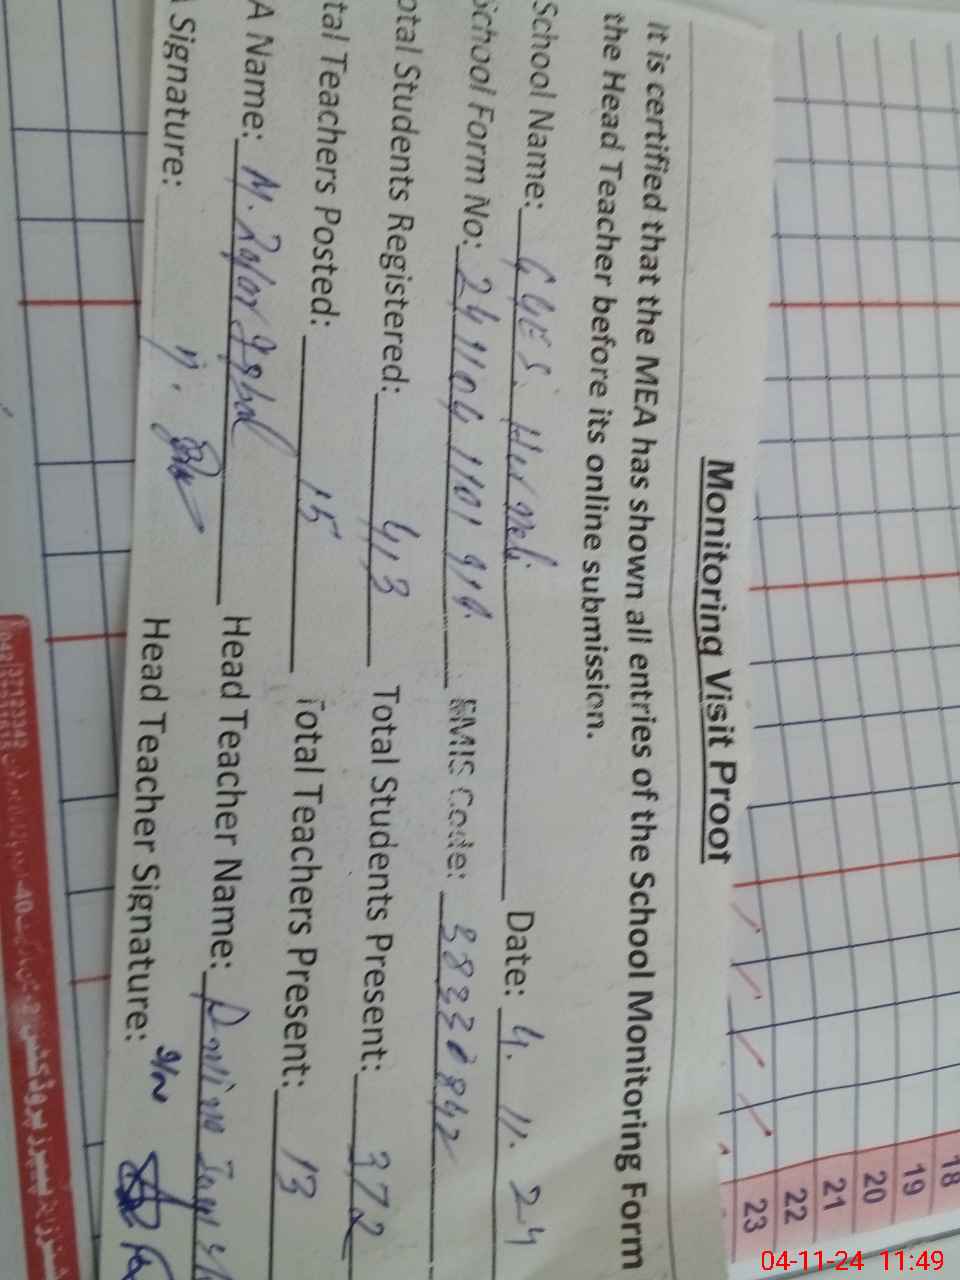 Monitoring Visit Proof
It is certified that the MEA has shown all entries of the School Monitoring Form
the Head Teacher before its online submission.
School Name: GGES. Date: 4. 11. 24
School Form No: EMIS Code: 38330842
otal Students Registered: 413 Total Students Present: 372
tal Teachers Posted: 15 Total Teachers Present: 13
A Name: M. Zafar Iqbal Head Teacher Name:
Signature: Head Teacher Signature:
18
19
20
21
22
23
04-11-24 11:49